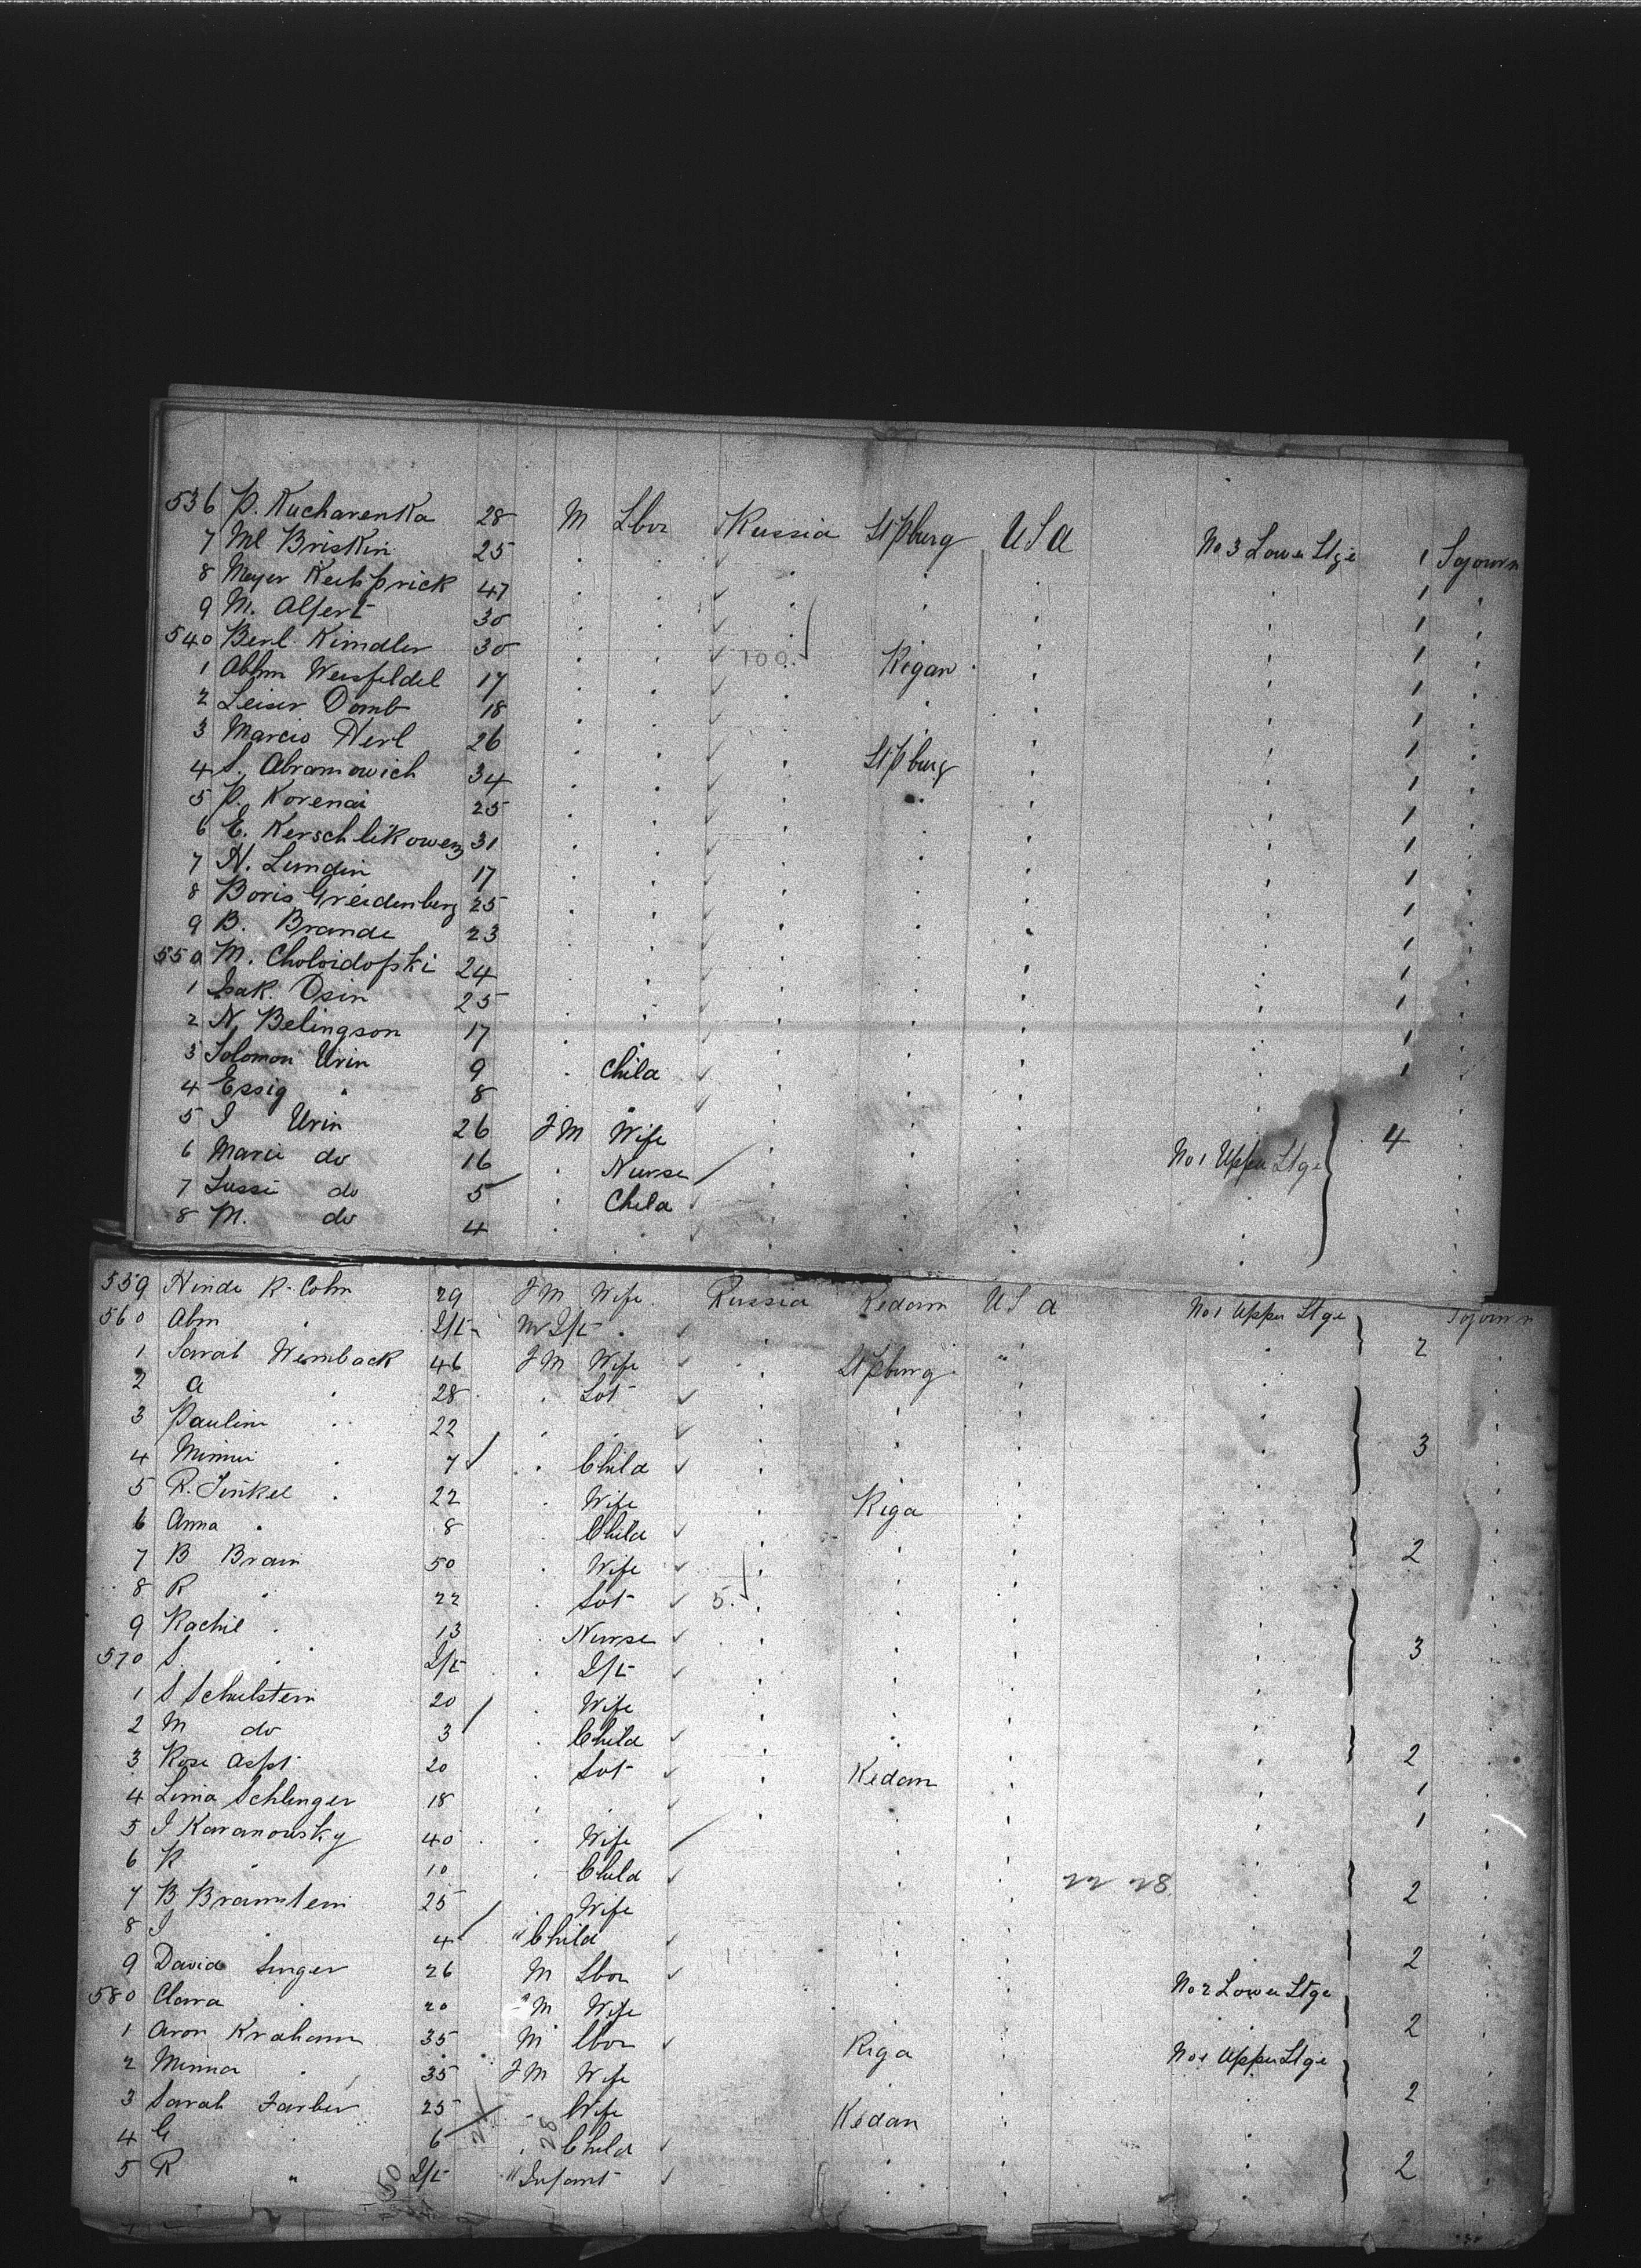 536 P. Kucharenka 28 M Lbor Russia St Pburg USA No 3 Lower Stge 1 Sojourn
7 Ml Briskin 25 " " " " " " 1 "
8 Meyer 47 " " " " " " 1 "
9 M. Alfert 30 " " " " " " 1 "
540 Berl Kimdler 30 " " 100. Rigan " " 1 "
1 Abhm Weisfeldel 17 " " " " " " 1 "
2 Leiser Domb 18 " " " " " " 1 "
3 Marcio Herl 26 " " " St Pburg " " 1 "
4 S. Abramowich 34 " " " " " " 1 "
5 P. Korenai 25 " " " " " " 1 "
6 E. 31 " " " " " " 1 "
7 N. Lundin 17 " " " " " " 1 "
8 Boris Greidenberg 25 " " " " " " 1 "
9 B. Brande 23 " " " " " " 1 "
550 M. 24 " " " " " " 1 "
1 Isak. Osin 25 " " " " " " 1 "
2 N. Belingson 17 " " " " " " 1 "
3 Solomon Urin 9 " Child " " " " 1 "
4 Essig " 8 " " " " " "
5 I Urin 26 F M Wife " " " No 1 Upper Stge 4 "
6 Marie do 16 " Nurse " " " " "
7 Lussi do 5 " Child " " " " "
8 M. do 4 " " " " " " "
559 Hinde R. Cohn 29 F M Wife Russia Kedam USA No 1 Upper Stge Sojourn
560 Abm " Ift M Ift " " " " " 2 "
1 Sarah Wemback 46 F M Wife " St Pburg " " "
2 A " 28 " Sot " " " " "
3 Paulina " 22 " " " " " " 3 "
4 Minnie " 7 " Child " " " " "
5 R. Finkel " 22 " Wife " Riga " " "
6 Anna " 8 " Child " " " " 2 "
7 B Brain 50 " Wife " " " " "
8 R " 22 " Sot 5. " " " "
9 Rachil " 13 " Nurse " " " " 3 "
570 S. " Ift " Ift " " " " "
1 S Schulstein 20 " Wife " " " " "
2 M do 3 " Child " " " " 2 "
3 Rosi Aspt 20 " Sot " Kedam " " 1 "
4 Lina Schlinger 18 " " " " " " 1 "
5 I Karanousky 40 " Wife " " " " "
6 R " 10 " Child " " " 22 28 " 2 "
7 B Bramstein 25 " Wife " " " " "
8 I " 4 " Child " " " " 2 "
9 David Singer 26 M Lbor " " " No 2 Lower Stge "
580 Clara " 20 F M Wife " " " " 2 "
1 Aron Kraham 35 M Lbor " Riga " No 1 Upper Stge "
2 Minna " 35 F M Wife " " " " 2 "
3 Sarah Farber 25 " Wife " Kedan " " "
4 G " 6 " 28 Child " " " " 2 "
5 R " Ift " Infant " " " " "